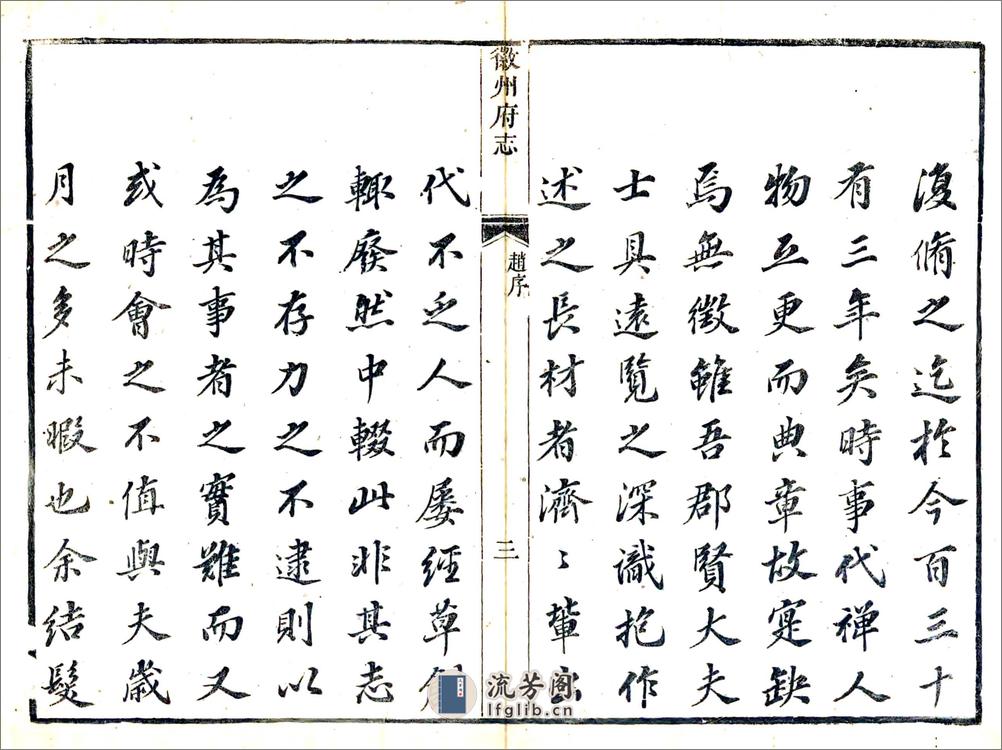 復脩之迄於今百三十
有三年矣時事代禪人
物互更而典章故寔缺
焉無徵雖吾郡賢大夫
士具遠覽之深識抱作
述之長材者濟〻輩出
徽州府志
趙序
三
代不乏人而屡經草創
輒廢然中輟此非其志
之不存力之不逮則以
為其事者之實難而又
或時會之不值與夫歲
月之多未暇也余結髮
流芳阁
lfglib.cn